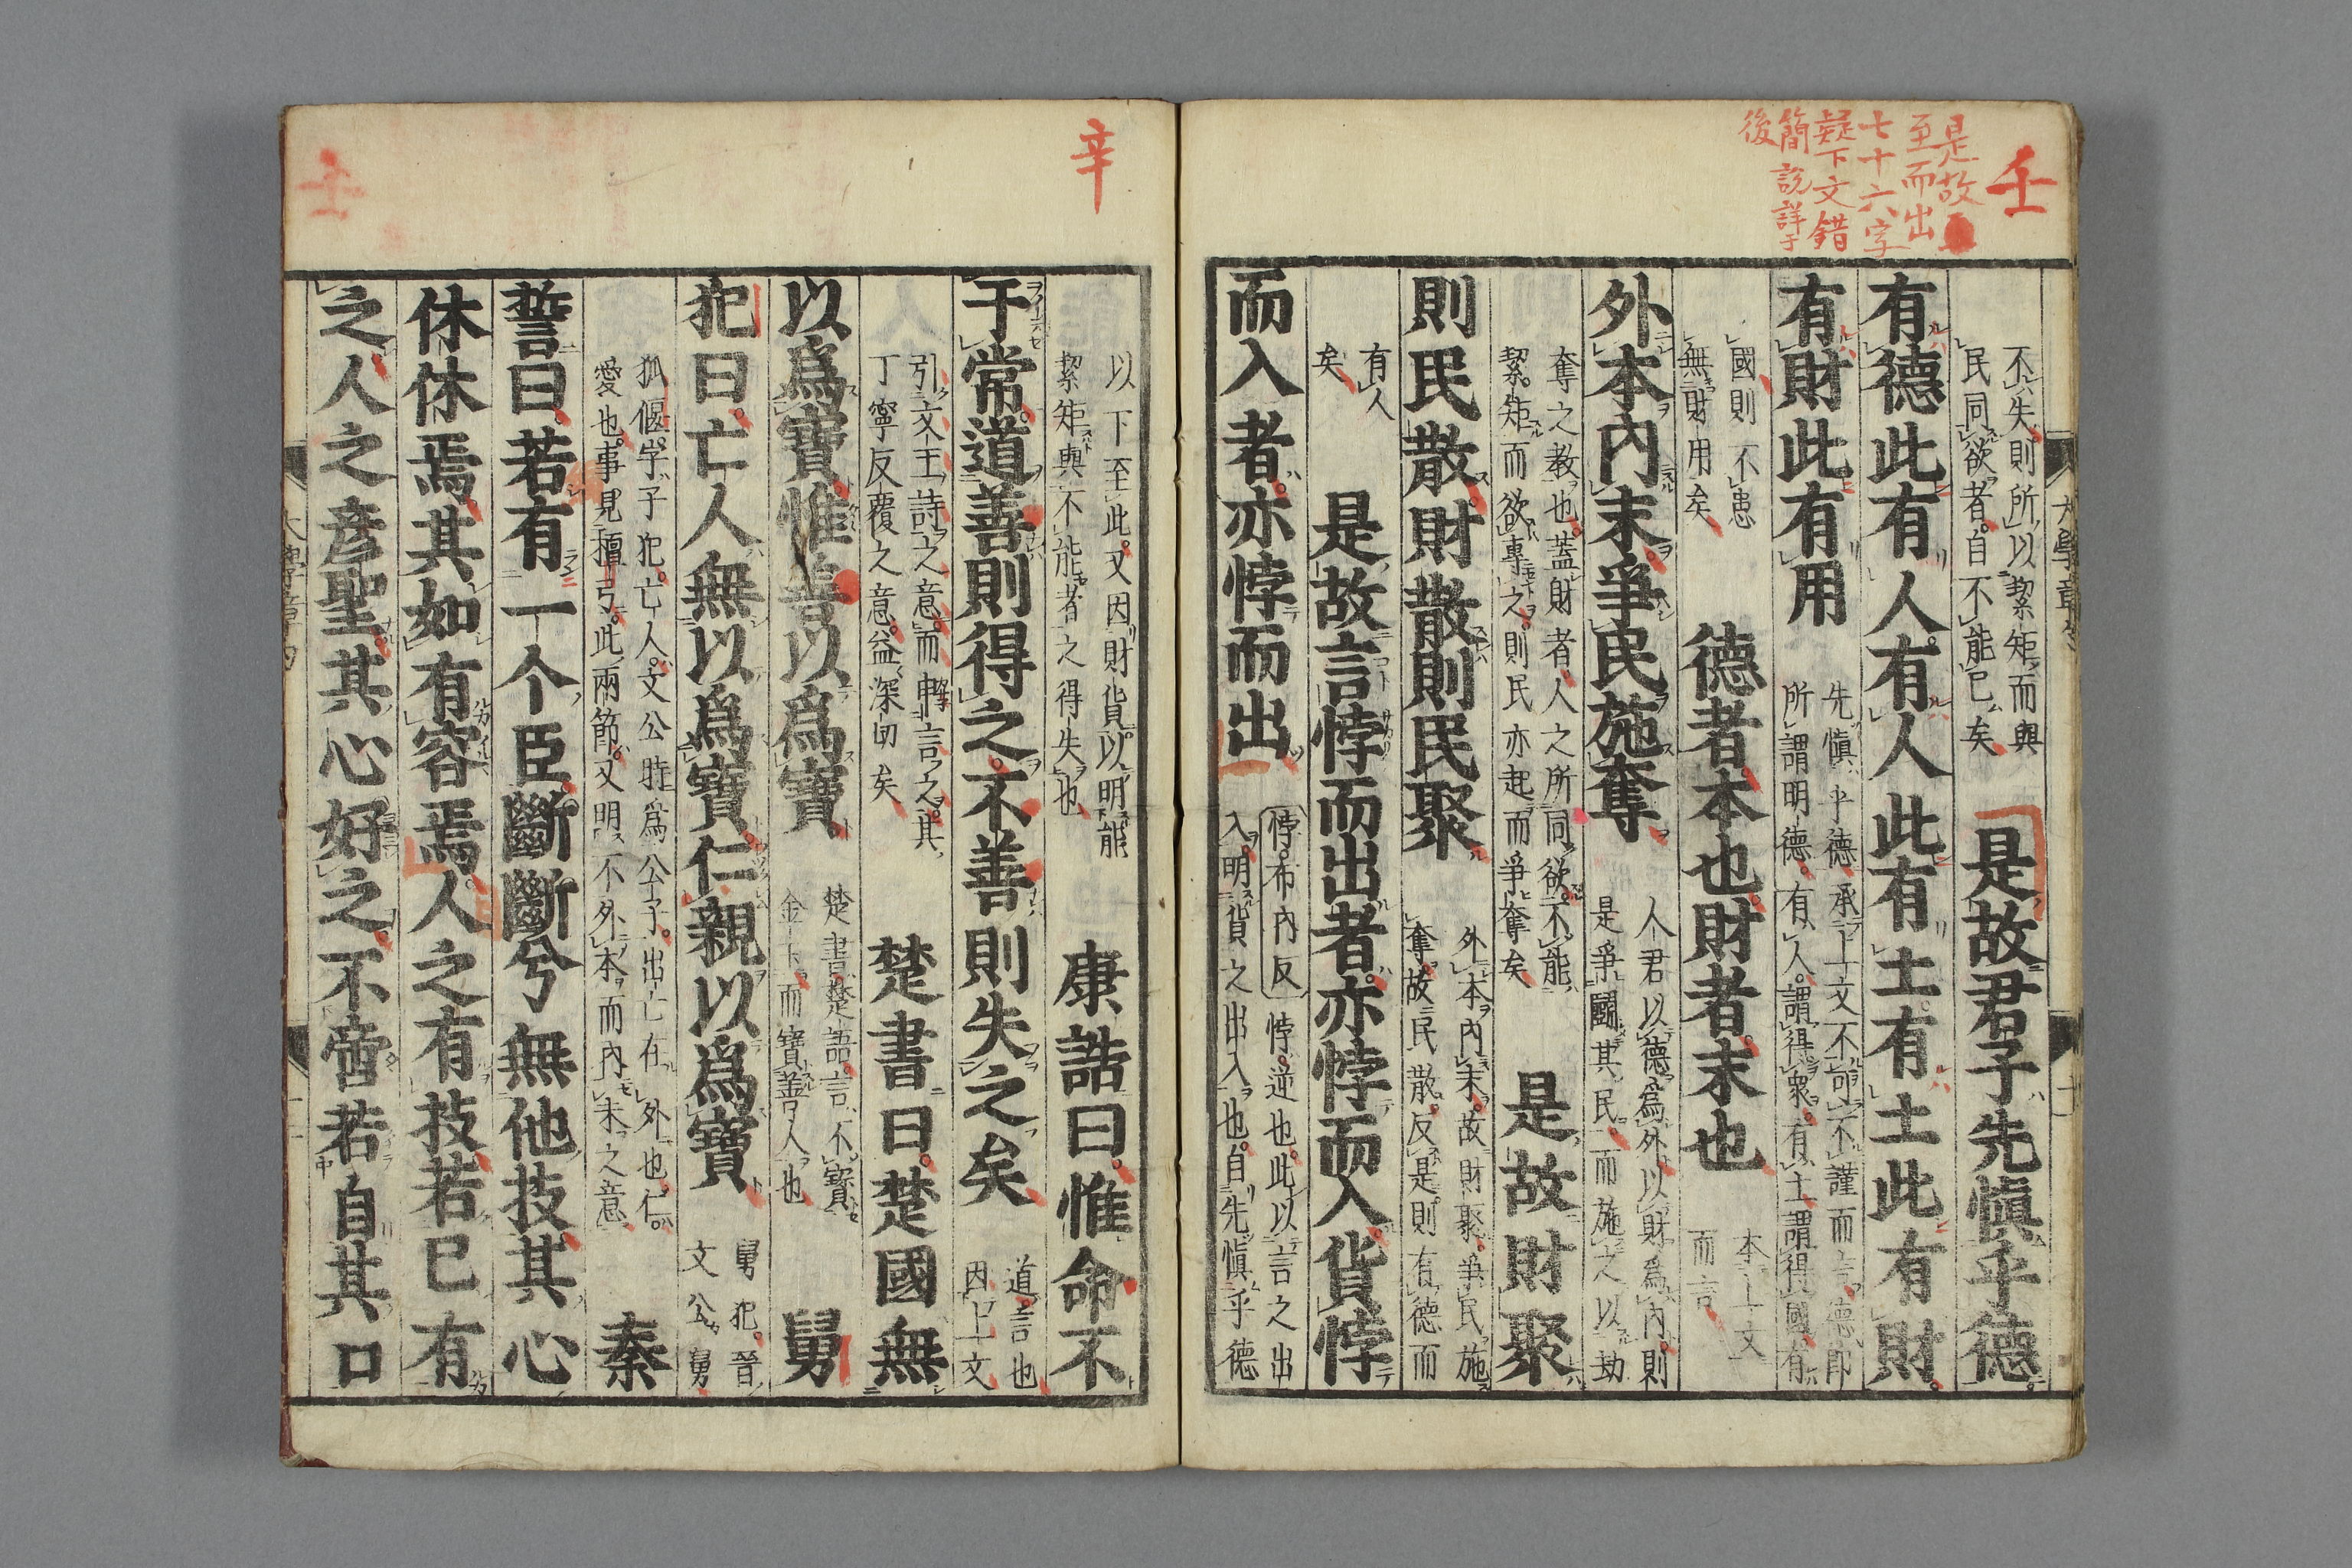 壬
是故
至而出
七十六字
疑下文錯
簡說詳于
後
不失則所以絜矩而與
民同欲者自不能已矣
是故君子先愼乎德
有德此有人有人此有土有土此有財
有財此有用
先愼乎德承上文不可不謹而言德即
所謂明德有人謂得衆有土謂得國有
國則不患
無財用矣
德者本也財者末也
本上文
而言
外本內末爭民施奪
人君以德爲外以財爲內則
是爭鬬其民而施之以劫
奪之教也蓋財者人之所同欲不能
絜矩而欲專之則民亦起而爭奪矣
是故財聚
則民散財散則民聚
外本內末故財聚爭民施
奪故民散反是則有德而
有人
矣
是故言悖而出者亦悖而入貨悖
而入者亦悖而出
悖布內反悖逆也此以言之出
入明貨之出入也自先愼乎德
辛
以下至此又因財貨以明能
絜矩與不能者之得失也
康誥曰惟命不
于常道善則得之不善則失之矣
道言也
因上文
引文王詩之意而申言之其
丁寧反覆之意益深切矣
楚書曰楚國無
以爲寶惟善以爲寶
楚書楚語言不寶
金玉而寶善人也
舅
犯曰亡人無以爲寶仁親以爲寶
舅犯晉
文公舅
狐偃字子犯亡人文公時爲公子出亡在外也仁
愛也事見檀弓此兩節又明不外本而內末之意
秦
誓曰若有一个臣斷斷兮無他技其心
休休焉其如有容焉人之有技若已有
之人之彥聖其心好之不啻若自其口
壬